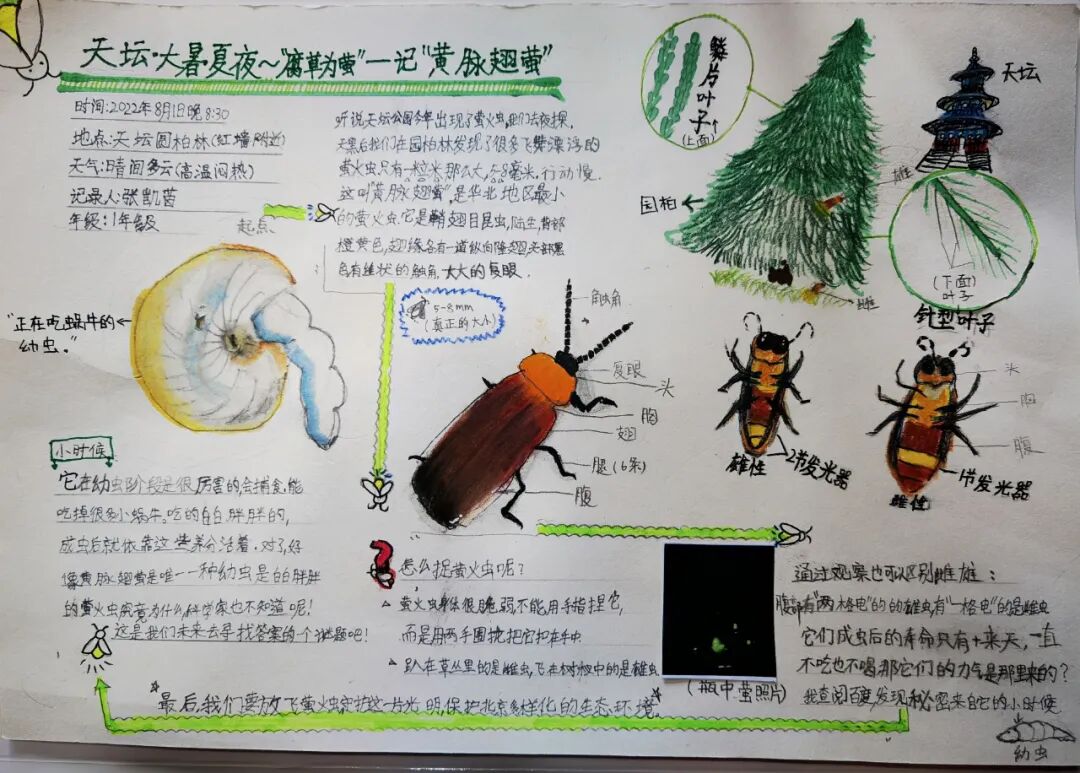 天坛·大暑夏夜～"腐草为萤"—记"黄脉翅萤"
时间:2022年8月1日晚8:30
地点:天坛圆柏林(红墙附近)
天气:晴间多云(高温闷热)
记录人:张凯茜
年级:1年级
起点
听说天坛公园今年出现了萤火虫,我们去夜探,
天黑后我们在园柏林发现了很多飞舞漂浮的
萤火虫只有一粒米那么大,5-8毫米,行动慢.
这叫"黄脉翅萤",是华北地区最小
的萤火虫.它是鞘翅目昆虫,陆生,背部
橙黄色,翅缘各有一道纵向隆翅,头部黑
色有丝状的触角,大大的复眼.
鳞片叶子
(上面)
天坛
圆柏
雄
雌
(下面)
叶子
针型叶子
"正在吃蜗牛的
幼虫."
5-8mm
(真正的大小)
触角
复眼
头
胸
翅
腿(6条)
腹
雄性
2节发光器
头
胸
腹
雌性
1节发光器
小时候
它在幼虫阶段是很厉害的,会捕食,能
吃掉很多小蜗牛.吃的白白胖胖的,
成虫后就依靠这些养分活着.对了,好
像黄脉翅萤是唯一一种幼虫是白白胖胖
的萤火虫,究竟为什么科学家也不知道呢!
这是我们未来去寻找答案的一个谜题吧!
怎么捉萤火虫呢?
萤火虫身体很脆弱,不能用手指捏它,
而是用两手围拢把它扣在手中
趴在草丛里的是雌虫,飞在树枝中的是雄虫
(瓶中萤照片)
通过观察也可以区别雌雄:
腹部有"两格电"的的雄虫,有"一格电"的是雌虫
它们成虫后的寿命只有十来天,一直
不吃也不喝那它们的力气是那里来的?
我查阅百度,发现秘密来自它的小时候
最后,我们要放飞萤火虫,守护这一片光明,保护北京多样化的生态环境.
幼虫